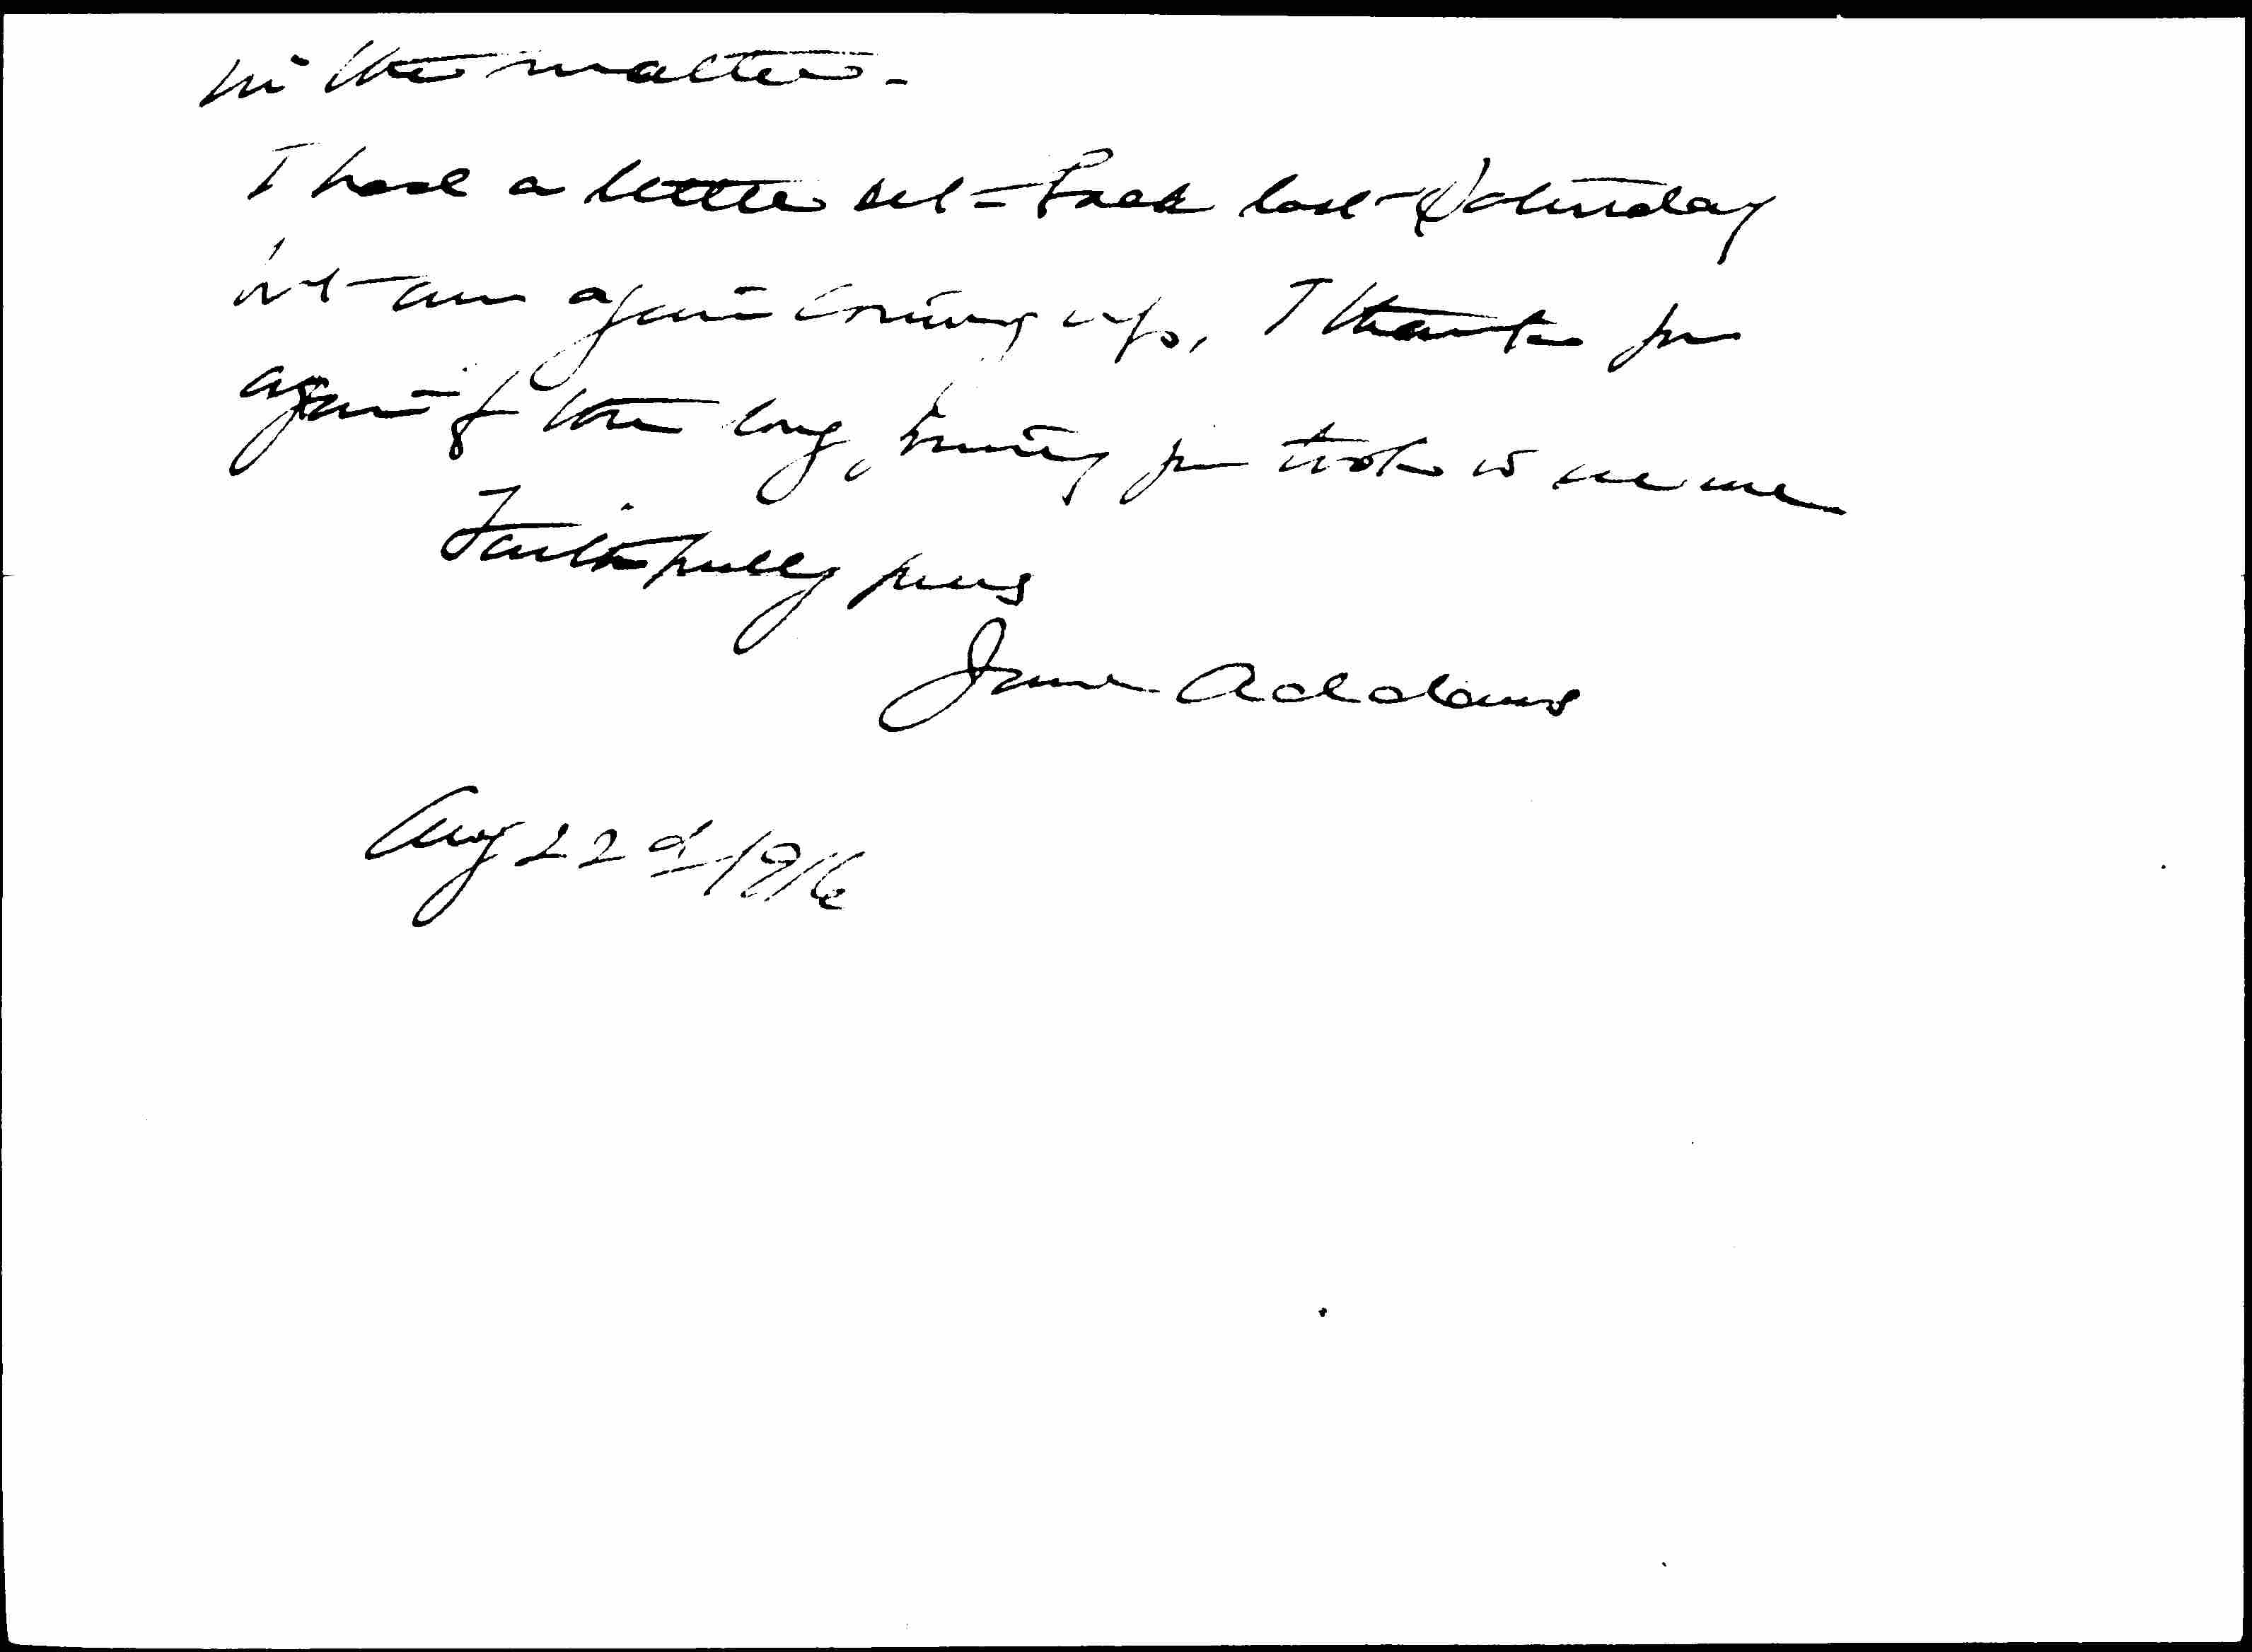 in the matter -
I had a little set-back last Saturday
but am again coming up, I thank you
again for the long, journey you took to see me
Faithfully yours
Jane Addams
Aug 22d 1916